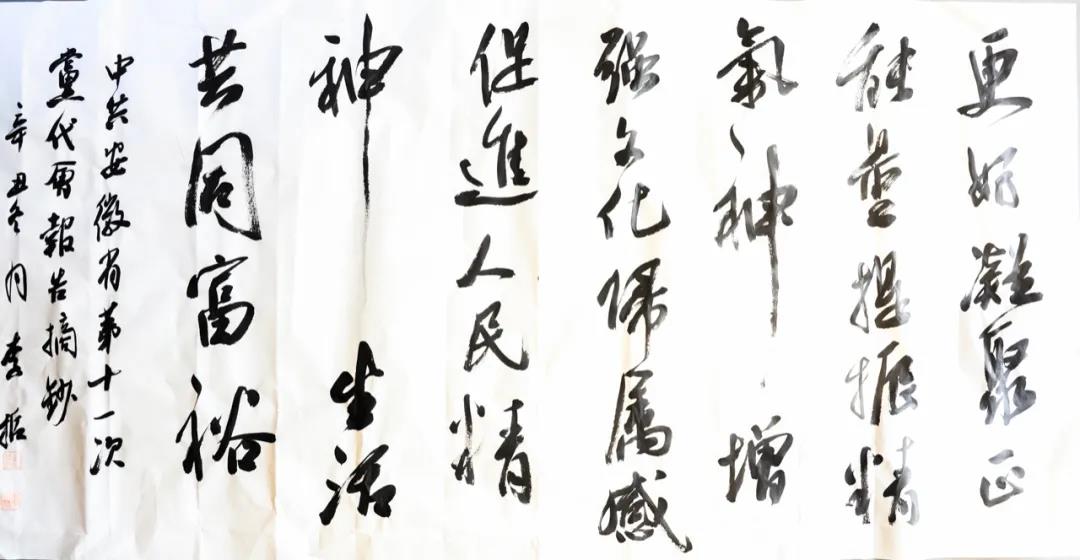 更好凝聚正
能量提振精
氣神增
强文化归属感
促進人民精
神生活
共同富裕
中共安徽省第十一次
黨代會報告摘鈔
辛丑冬月 李振